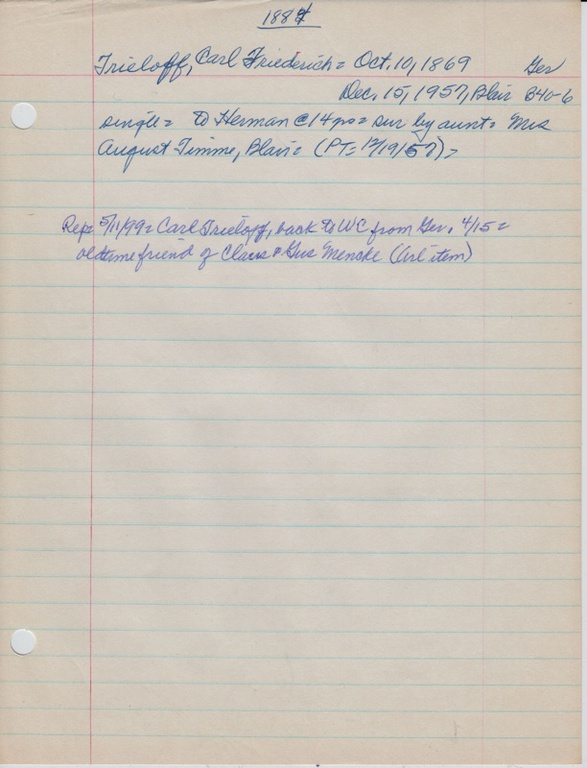 1884
Trieloff, Carl Friederich = Oct. 10, 1869 Ger
Dec. 15, 1957, Blair B40-6
single = to Herman @ 14 yo = sur by aunt = Mrs
August Timme, Blair = (PT = 12/19/57) =
Rep = 5/11/99 = Carl Trieloff, back to WC from Ger. 4/15 =
oldtime friend of Claus & Gus Mencke (Arl item)